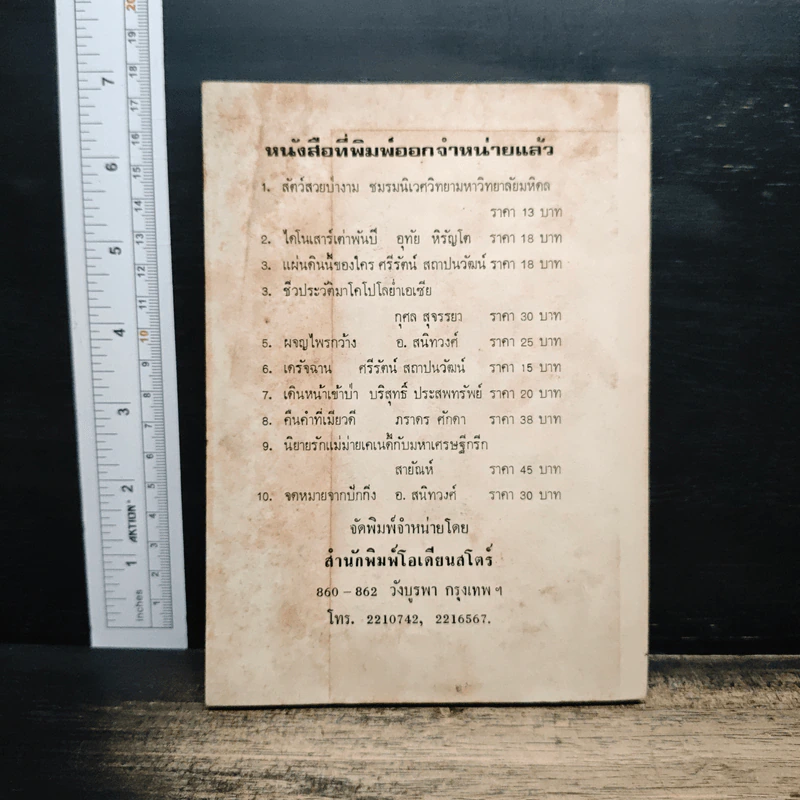 หนังสือที่พิมพ์ออกจำหน่ายแล้ว
1. สัตว์สวยป่างาม ชมรมนิเวศวิทยามหาวิทยาลัยมหิดล
ราคา 13 บาท
2. ไดโนเสาร์เต่าพันปี อุทัย หิรัญโต ราคา 18 บาท
3. แผ่นดินนี้ของใคร ศรีรัตน์ สถาปนวัฒน์ ราคา 18 บาท
3. ชีวประวัติมาโคโปโลย่ำเอเซีย
กุศล สุจรรยา ราคา 30 บาท
5. ผจญไพรกว้าง อ. สนิทวงศ์ ราคา 25 บาท
6. เดรัจฉาน ศรีรัตน์ สถาปนวัฒน์ ราคา 15 บาท
7. เดินหน้าเข้าป่า บริสุทธิ์ ประสพทรัพย์ ราคา 20 บาท
8. คืนค่ำที่เมียวดี ภราดร ศักดา ราคา 38 บาท
9. นิยายรักแม่ม่ายเคเนดี้กับมหาเศรษฐีกรีก
สายัณห์ ราคา 45 บาท
10. จดหมายจากปักกิ่ง อ. สนิทวงศ์ ราคา 30 บาท
จัดพิมพ์จำหน่ายโดย
สำนักพิมพ์โอเดียนสโตร์
860 – 862 วังบูรพา กรุงเทพ ฯ
โทร. 2210742, 2216567.
7
6
5
4
3
2
1
inches
AKTION
20
19
18
17
16
15
14
13
12
11
10
9
8
7
6
5
4
3
2
1